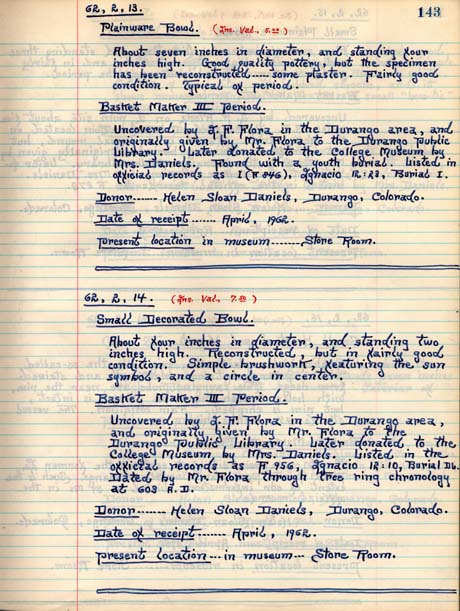 143
62, 2, 13.
Plainware Bowl. (Ins. Val., 5.00)
About seven inches in diameter, and standing four
inches high. Good quality pottery, but the specimen
has been reconstructed---- some plaster. Fairly good
condition. Typical of period.
Basket Maker III Period.
Uncovered by I. F. Flora in the Durango area, and
originally given by Mr. Flora to the Durango Public
Library. Later donated to the College Museum by
Mrs. Daniels. Found with a youth burial. Listed in
official records as I (F 846), Ignacio 12:23, Burial I.
Donor------- Helen Sloan Daniels, Durango, Colorado.
Date of receipt------- April, 1962.
Present location in museum-------, Store Room.
62, 2, 14. (Ins. Val., 7.50)
Small Decorated Bowl.
About four inches in diameter, and standing two
inches high. Reconstructed, but in fairly good
condition. Simple brushwork, featuring the sun
symbol, and a circle in center.
Basket Maker III Period.
Uncovered by I. F. Flora in the Durango area,
and originally given by Mr. Flora to the
Durango Public Library. Later donated to the
College Museum by Mrs. Daniels. Listed in the
official records as F 956, Ignacio 12:10, Burial
Dated by Mr. Flora through tree ring chronology
at 603 A.D.
Donor------- Helen Sloan Daniels, Durango, Colorado.
Date of receipt------- April, 1962.
Present location --- in museum --- Store Room.